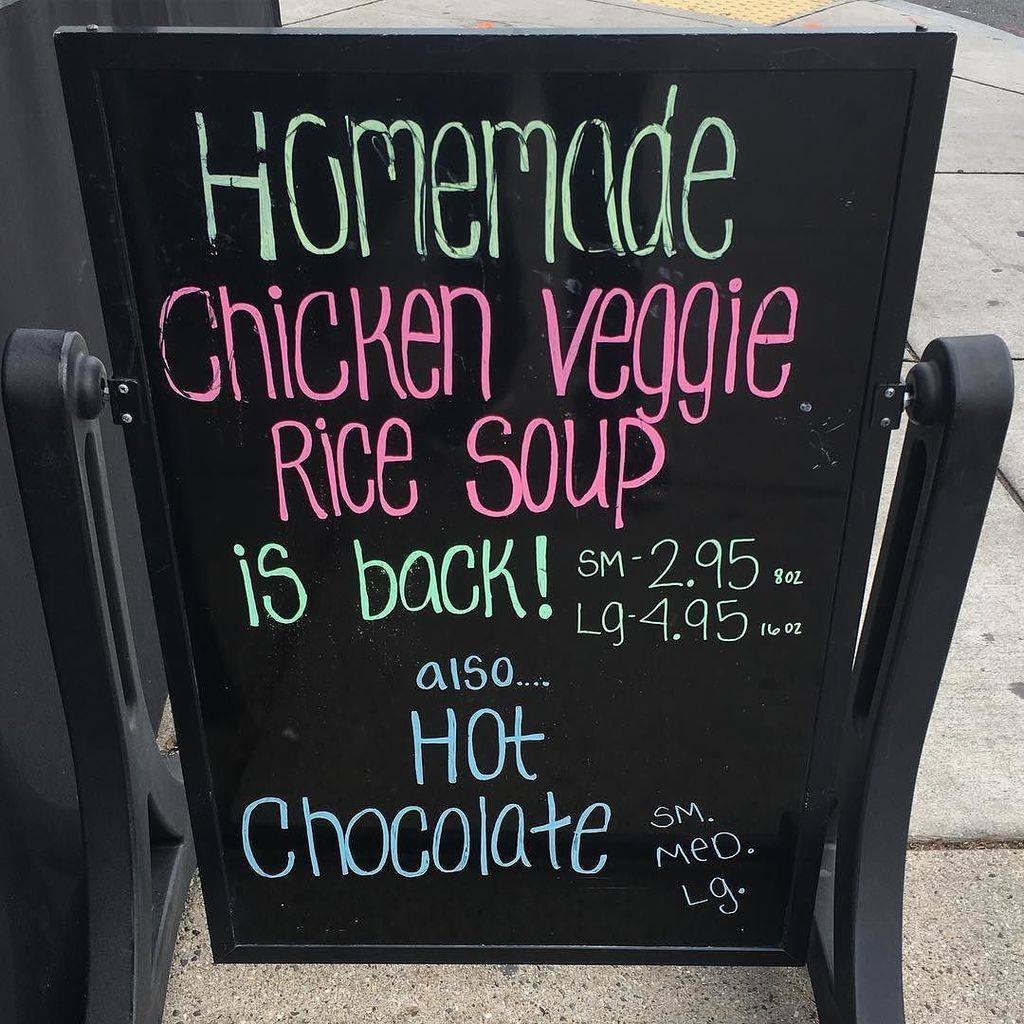 Homemade
Chicken Veggie
Rice Soup
is back! SM-2.95 8oz
Lg-4.95 16oz
also....
Hot
Chocolate SM.
MED.
Lg.